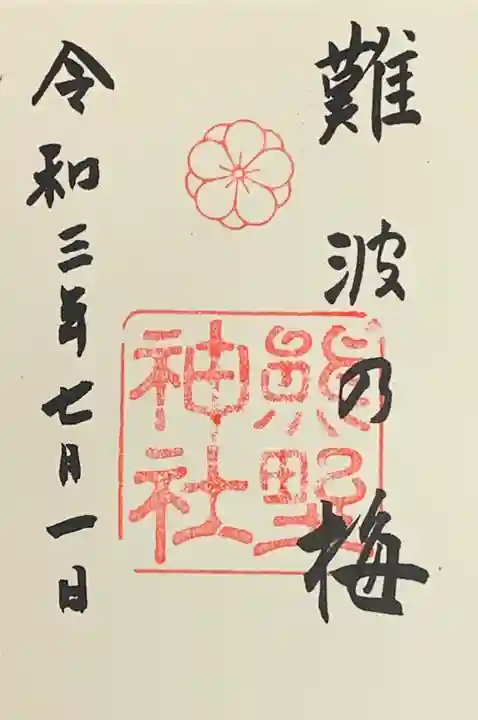 難波の梅
熊野
神社
令和三年七月一日